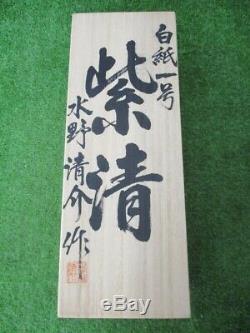 白紙一号
紫清
水野清介作